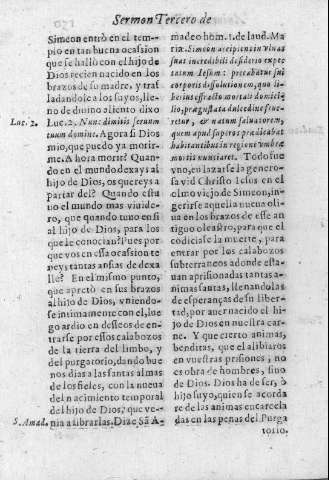 Sermon Tercero de
Simeon entrò en el tem-
plo en tan buena ocasion
que se hallò con el hijo de
Dios recien nacido en los
brazos de su madre, y tras
ladandole a los suyos, lle-
no de diuino aliento dixo
Luc. 2.
Luc. 2. Nunc dimitis seruum
tuum domine. Agora si Dios
mio, que puedo ya morir-
me. A hora morir? Quan-
do en el mundo dexays al hijo
de Dios, os quereys a
partar del? Quando esta
ua el mundo mas viuide-
ro, que quando tuuo en si
al hijo de Dios, para los
que le conocian? Pues por
que vos en essa ocasion te
neys tantas ansias de dexa
lle? En el mismo punto,
que apretò en sus brazos
al hijo de Dios, vniendo-
se intimamente con el, lue
go ardio en desseos de en-
trarse por essos calabozos
de la tierra del limbo, y
del purgatorio, dando bue
nos dias a las santas almas
de los fieles, con la nueua
del nacimiento temporal
del hijo de Dios, que ve-
S. Amad.
nia a librarlas. Dize Sã A-
madeo hom. 1. de laud. Ma
riæ. Simeon accipiens in vlnas
suas incredibili desiderio expe
ctatum Iesum: precabatur sui
corporis dissolutionem, quo li-
berius effracto mortali domici-
lio, prægustata dulcedine frue-
retur, & natum saluatorem,
quem apud superos prædicabat
habitantibus in regione vmbræ
mortis nunciaret. Todo fue
vno, enlazarse la genero-
sa vid Christo Iesus en el
olmo viejo de Simeon, in-
gerirse aquella nueua oli-
ua en los brazos de este an
tiguo oleastro, para que el
codiciasse la muerte, para
entrar por los calabozos
subterraneos adonde esta-
uan aprisionadas tantas a-
nimas santas, llenandolas
de esperanças de su liber-
tad, por auer nacido el hi-
jo de Dios en nuestra car-
ne. Y que cierto animas,
benditas, que el aliuiaros
en vuestras prisiones, no
es obra de hombres, sino
de Dios. Dios ha de ser, ò
hijo suyo, quien se acorda
re de las animas encarcela
das en las penas del Purga
torio.